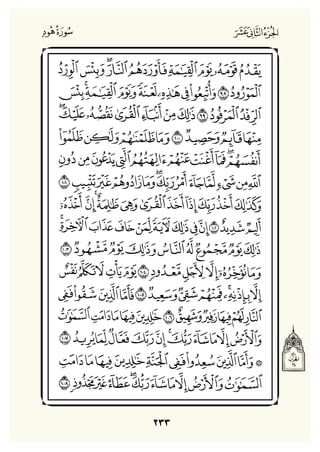 الجزء الثاني عشر
سورة هود
يَقْدُمُ قَوْمَهُۥ يَوْمَ ٱلْقِيَٰمَةِ فَأَوْرَدَهُمُ ٱلنَّارَ ۖ وَبِئْسَ ٱلْوِرْدُ
ٱلْمَوْرُودُ ٩٨ وَأُتْبِعُوا۟ فِى هَٰذِهِۦ لَعْنَةً وَيَوْمَ ٱلْقِيَٰمَةِ ۚ بِئْسَ
ٱلرِّفْدُ ٱلْمَرْفُودُ ٩٩ ذَٰلِكَ مِنْ أَنۢبَآءِ ٱلْقُرَىٰ نَقُصُّهُۥ عَلَيْكَ ۖ
مِنْهَا قَآئِمٌ وَحَصِيدٌ ١٠٠ وَمَا ظَلَمْنَٰهُمْ وَلَٰكِن ظَلَمُوٓا۟
أَنفُسَهُمْ ۖ فَمَآ أَغْنَتْ عَنْهُمْ ءَالِهَتُهُمُ ٱلَّتِى يَدْعُونَ مِن دُونِ
ٱللَّهِ مِن شَىْءٍ لَّمَّا جَآءَ أَمْرُ رَبِّكَ ۖ وَمَا زَادُوهُمْ غَيْرَ تَتْبِيبٍ ١٠١
وَكَذَٰلِكَ أَخْذُ رَبِّكَ إِذَآ أَخَذَ ٱلْقُرَىٰ وَهِىَ ظَٰلِمَةٌ ۚ إِنَّ أَخْذَهُۥٓ
أَلِيمٌ شَدِيدٌ ١٠٢ إِنَّ فِى ذَٰلِكَ لَءَايَةً لِّمَنْ خَافَ عَذَابَ ٱلْءَاخِرَةِ ۚ
ذَٰلِكَ يَوْمٌ مَّجْمُوعٌ لَّهُ ٱلنَّاسُ وَذَٰلِكَ يَوْمٌ مَّشْهُودٌ ١٠٣
وَمَا نُؤَخِّرُهُۥٓ إِلَّا لِأَجَلٍ مَّعْدُودٍ ١٠٤ يَوْمَ يَأْتِ لَا تَكَلَّمُ نَفْسٌ
إِلَّا بِإِذْنِهِۦ ۚ فَمِنْهُمْ شَقِىٌّ وَسَعِيدٌ ١٠٥ فَأَمَّا ٱلَّذِينَ شَقُوا۟ فَفِى
ٱلنَّارِ لَهُمْ فِيهَا زَفِيرٌ وَشَهِيقٌ ١٠٦ خَٰلِدِينَ فِيهَا مَا دَامَتِ ٱلسَّمَٰوَٰتُ
وَٱلْأَرْضُ إِلَّا مَا شَآءَ رَبُّكَ ۚ إِنَّ رَبَّكَ فَعَّالٌ لِّمَا يُرِيدُ ١٠٧
۞ وَأَمَّا ٱلَّذِينَ سُعِدُوا۟ فَفِى ٱلْجَنَّةِ خَٰلِدِينَ فِيهَا مَا دَامَتِ
ٱلسَّمَٰوَٰتُ وَٱلْأَرْضُ إِلَّا مَا شَآءَ رَبُّكَ ۖ عَطَآءً غَيْرَ مَجْذُوذٍ ١٠٨
٢٣٣